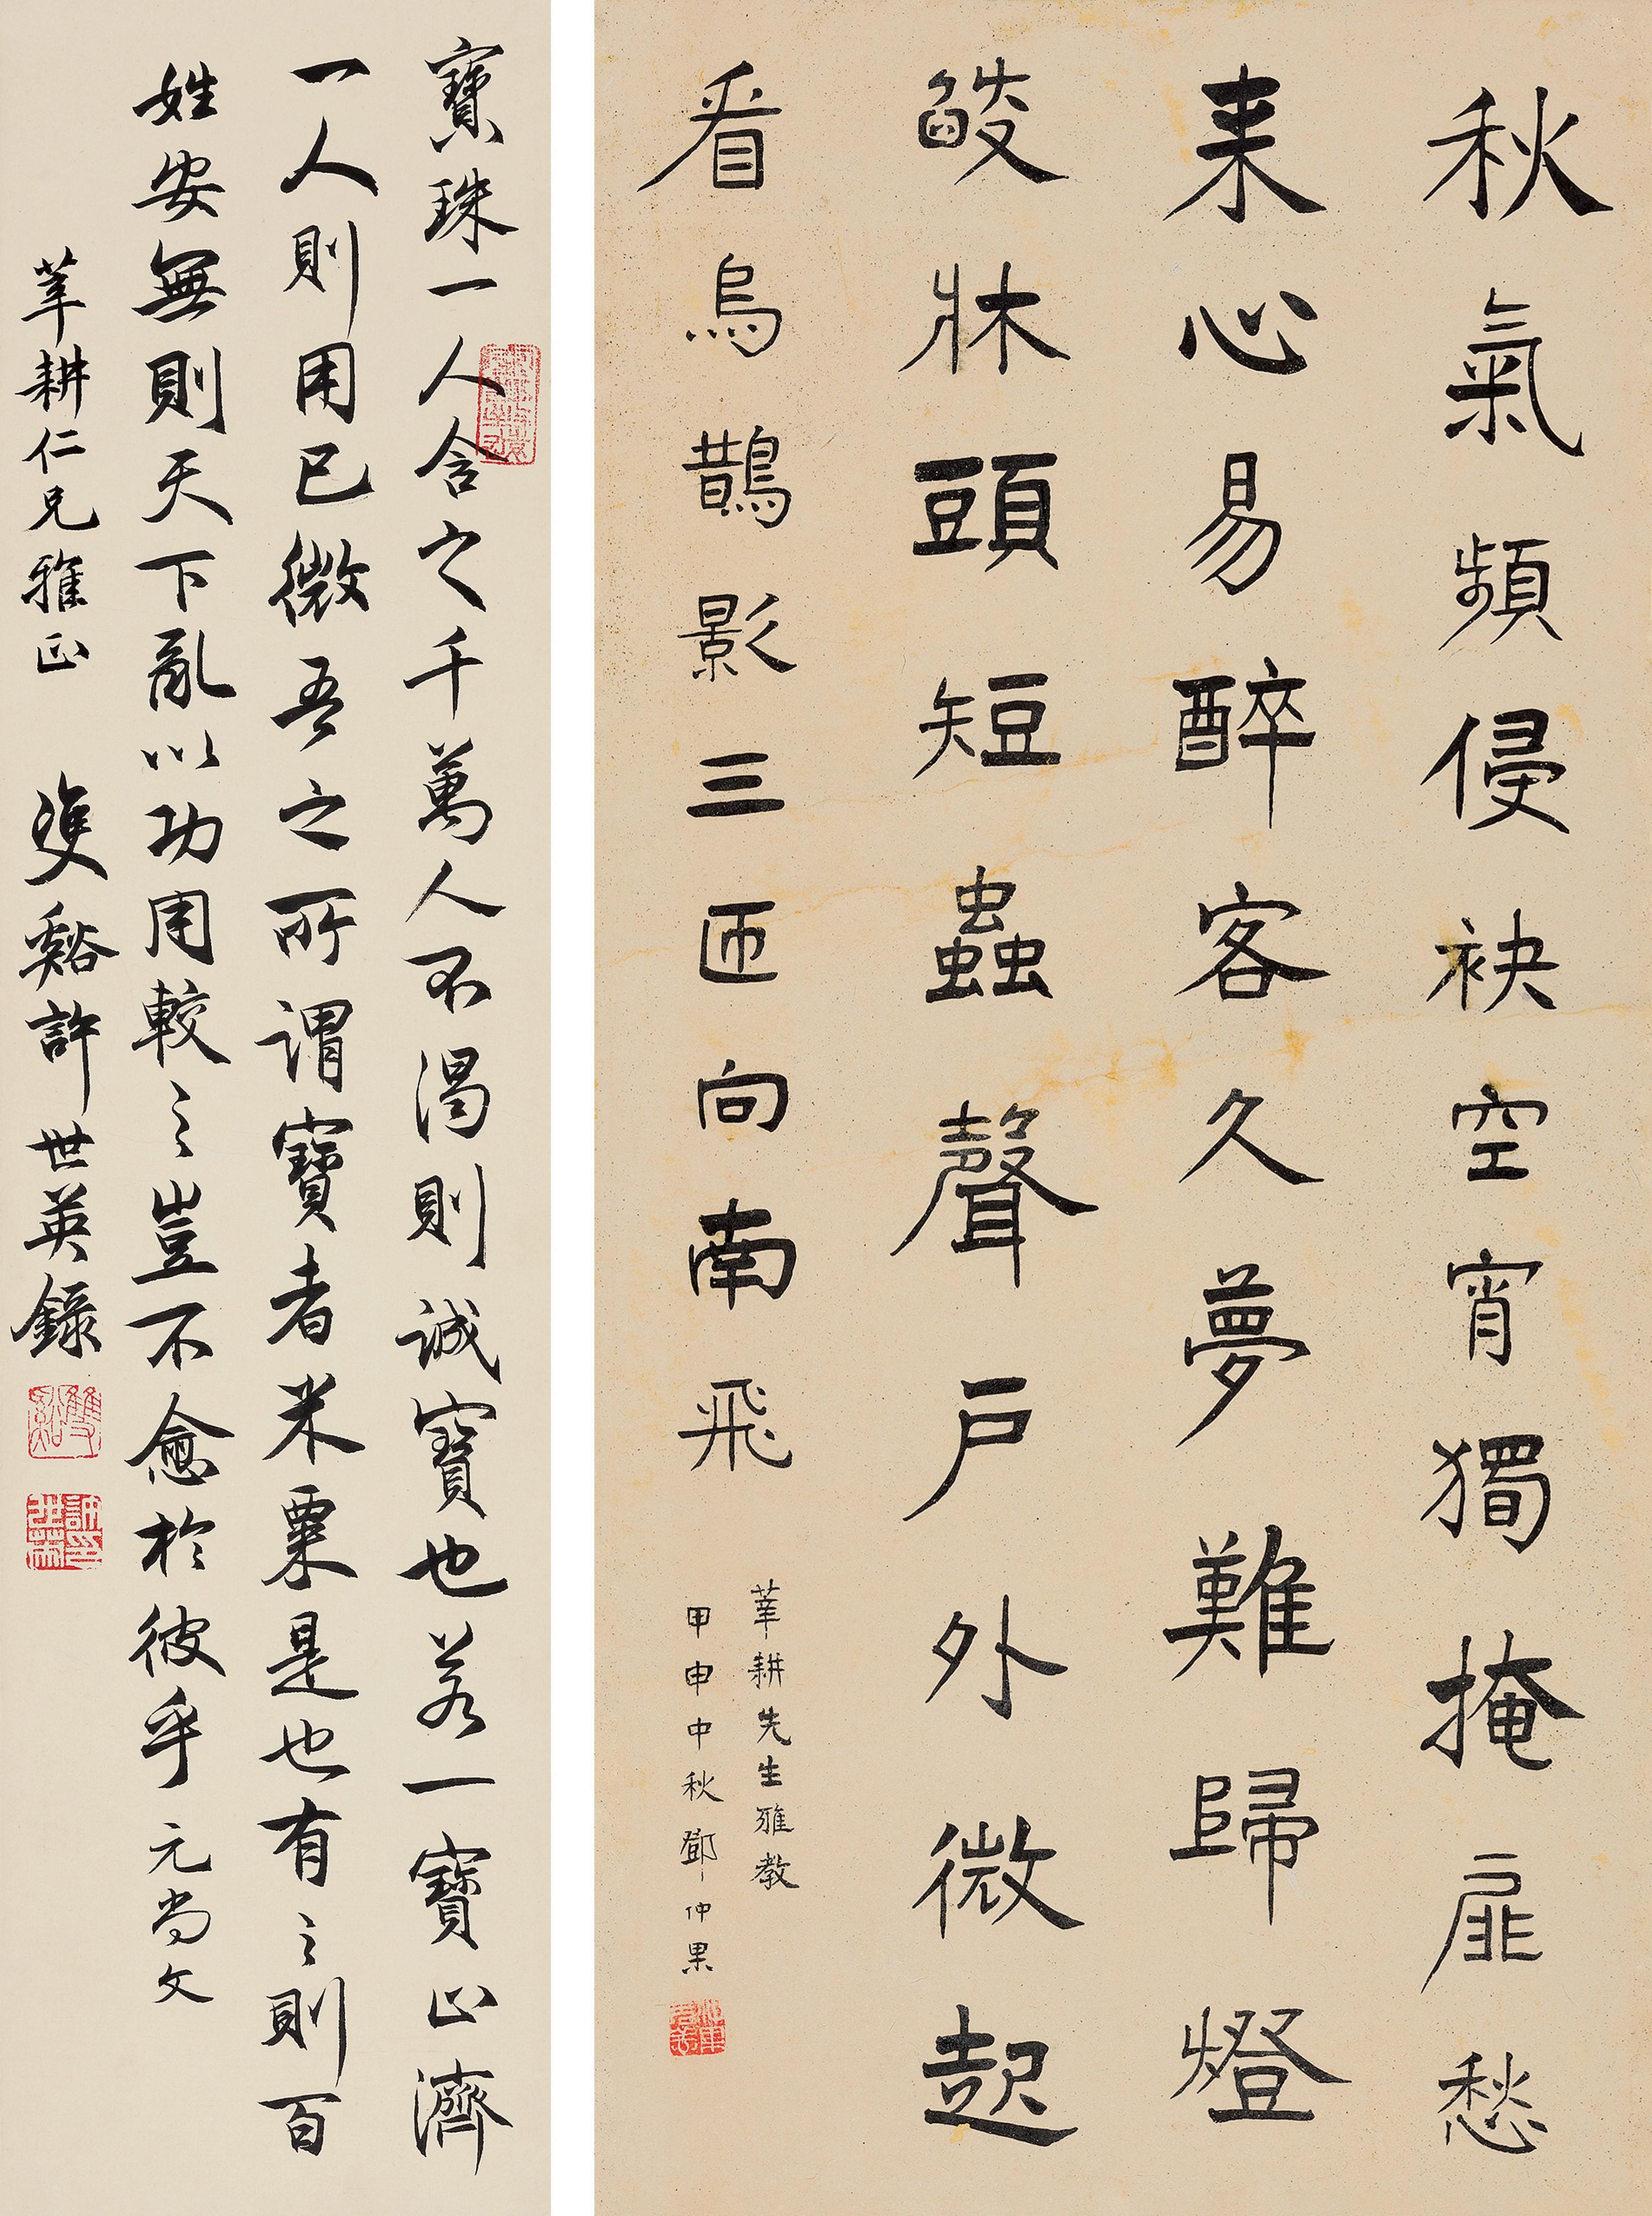 秋氣頻侵袂空宵獨掩扉愁
来心易醉客久夢難歸燈
皴牀頭短蟲聲戶外微起
看烏鵲影三匝向南飛
莘耕先生雅教
甲申中秋鄧仲果
寶珠一人含之千萬人不渴則誠寶也若一寶止濟
一人則用已微吾之所謂寶者米粟是也有之則百
姓安無則天下亂以功用較之豈不愈於彼乎元尚文
莘耕仁兄雅正 雙谿許世英錄
雙谿
許世英印